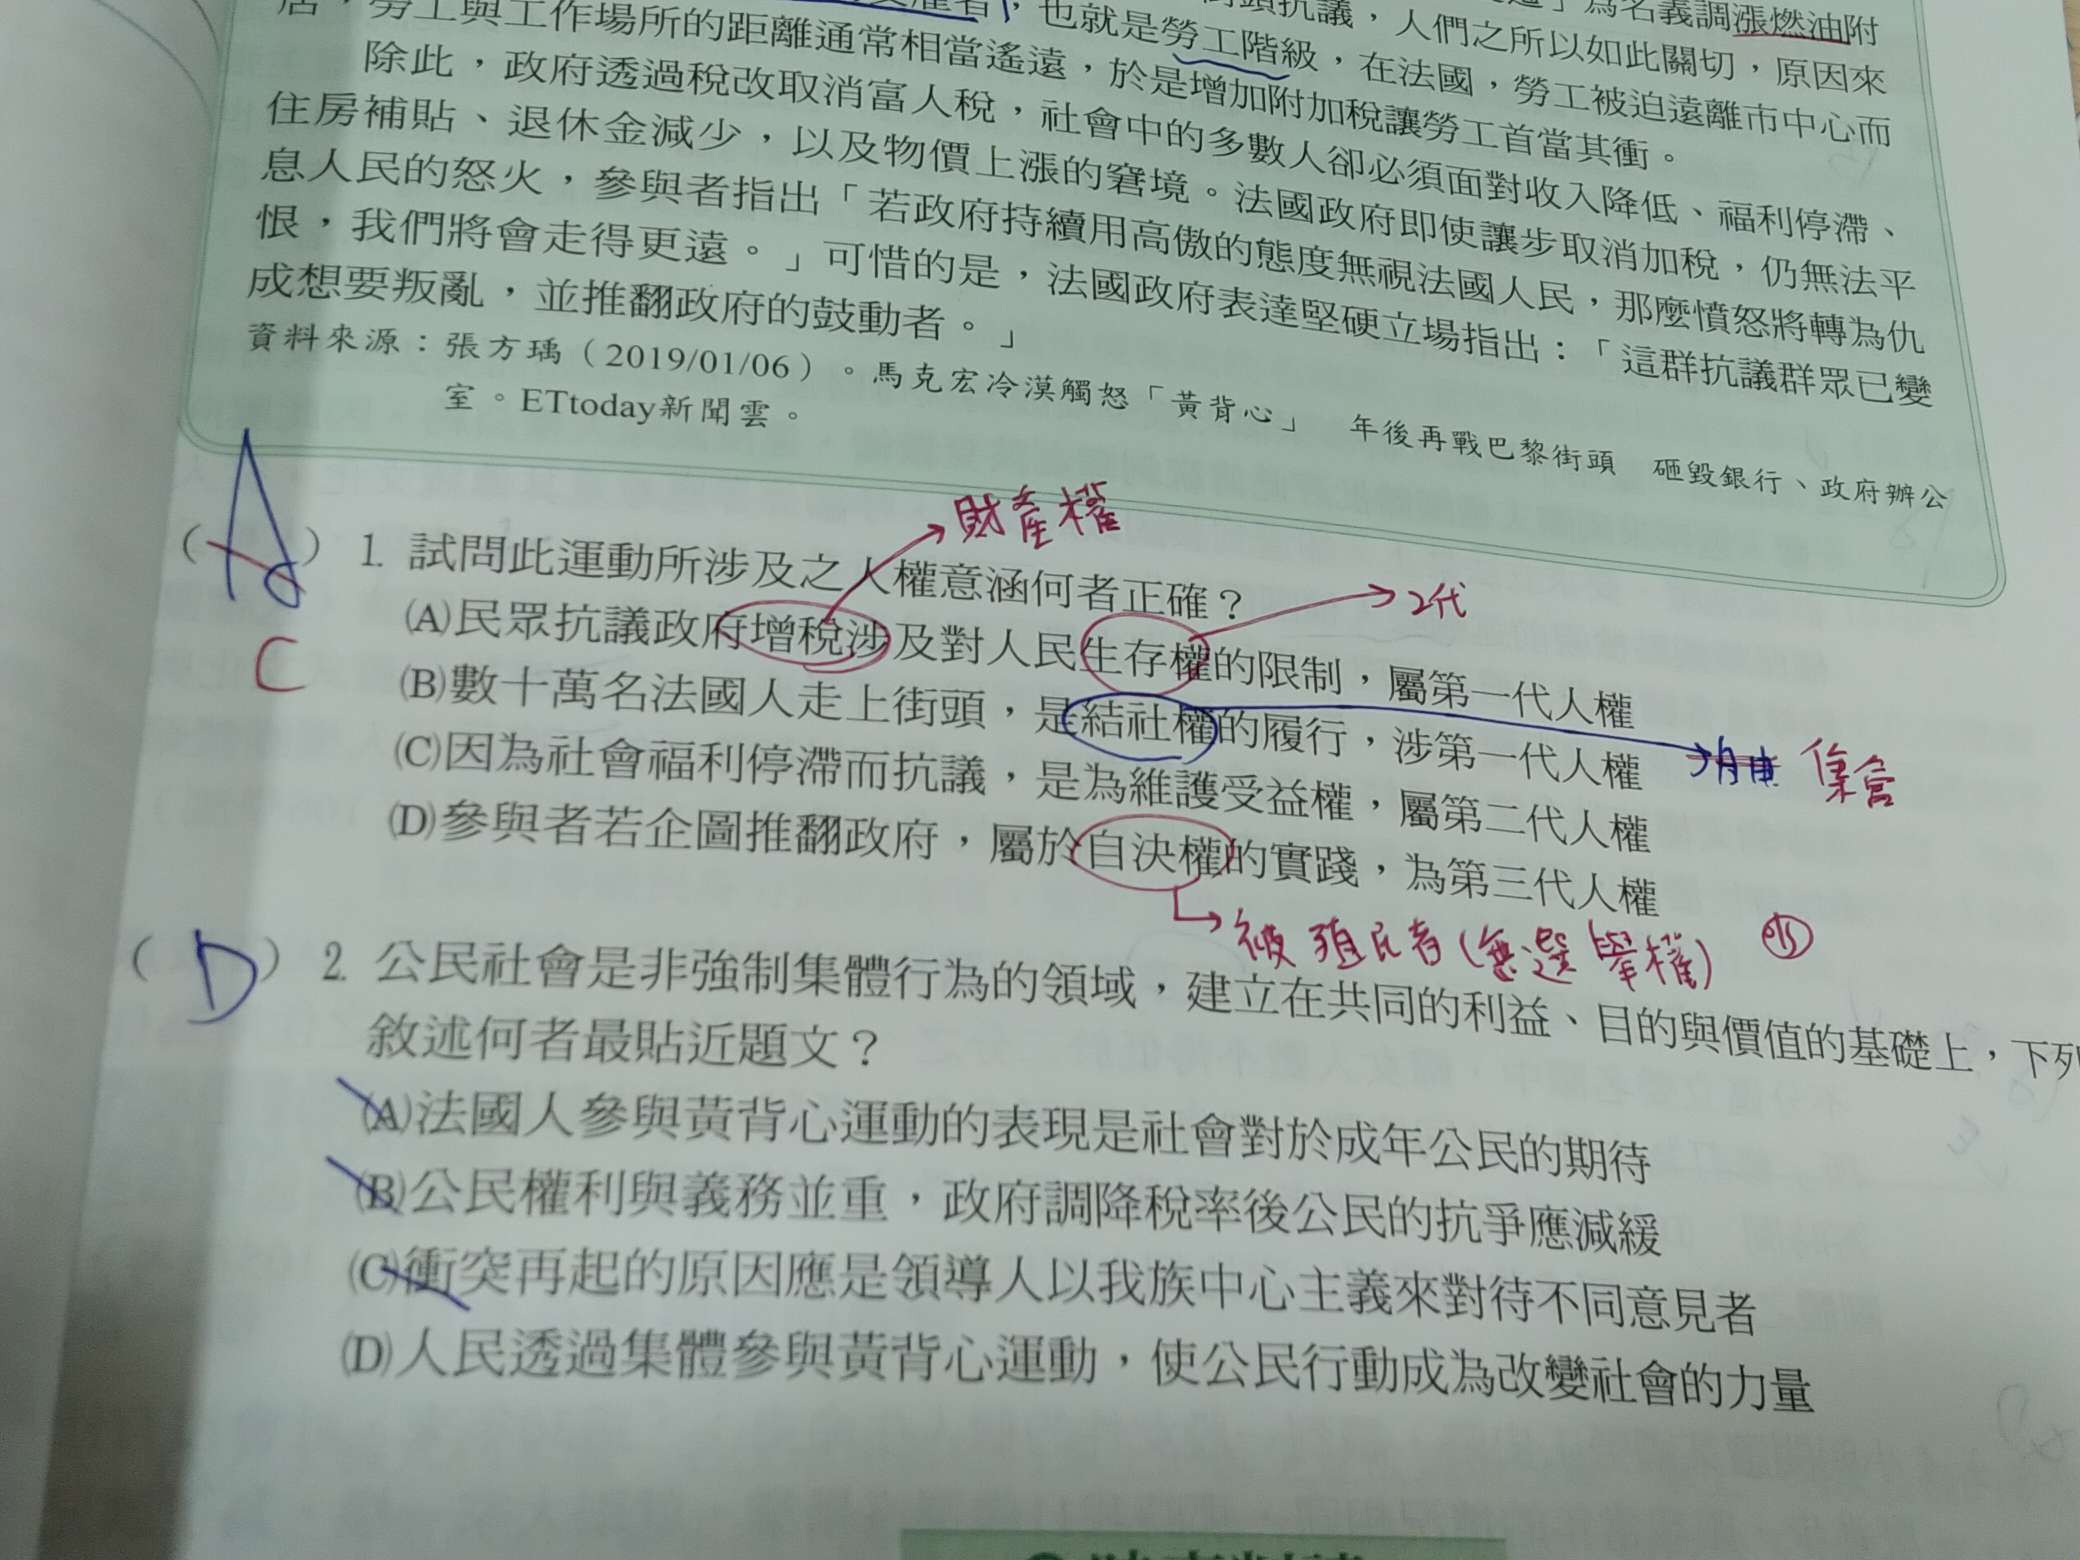 為名義調漲燃油附
也就是勞工階級，人們之所以如此關切，原因來
居，勞工與工作場所的距離通常相當遙遠，於是增加附加稅讓勞工首當其衝。
在法國，勞工被迫遠離市中心而
除此，政府透過稅改取消富人稅，社會中的多數人卻必須面對收入降低、福利停滯、
住房補貼、退休金減少，以及物價上漲的窘境。法國政府即使讓步取消加稅，仍無法平
息人民的怒火，參與者指出「若政府持續用高傲的態度無視法國人民，那麼憤怒將轉為仇
恨，我們將會走得更遠。」可惜的是，法國政府表達堅硬立場指出：「這群抗議群眾已變
成想要叛亂，並推翻政府的鼓動者。」
資料來源：張方瑀（2019/01/06）。馬克宏冷漠觸怒「黃背心」　年後再戰巴黎街頭　砸毀銀行、政府辦公
室。ETtoday新聞雲。
財產權
（A）1. 試問此運動所涉及之人權意涵何者正確？
2代
C
(A)民眾抗議政府增稅涉及對人民生存權的限制，屬第一代人權
(B)數十萬名法國人走上街頭，是結社權的履行，涉第一代人權
集會
(C)因為社會福利停滯而抗議，是為維護受益權，屬第二代人權
(D)參與者若企圖推翻政府，屬於自決權的實踐，為第三代人權
被殖民者(無選舉權)
（D）2. 公民社會是非強制集體行為的領域，建立在共同的利益、目的與價值的基礎上，下列
敘述何者最貼近題文？
(A)法國人參與黃背心運動的表現是社會對於成年公民的期待
(B)公民權利與義務並重，政府調降稅率後公民的抗爭應減緩
(C)衝突再起的原因應是領導人以我族中心主義來對待不同意見者
(D)人民透過集體參與黃背心運動，使公民行動成為改變社會的力量